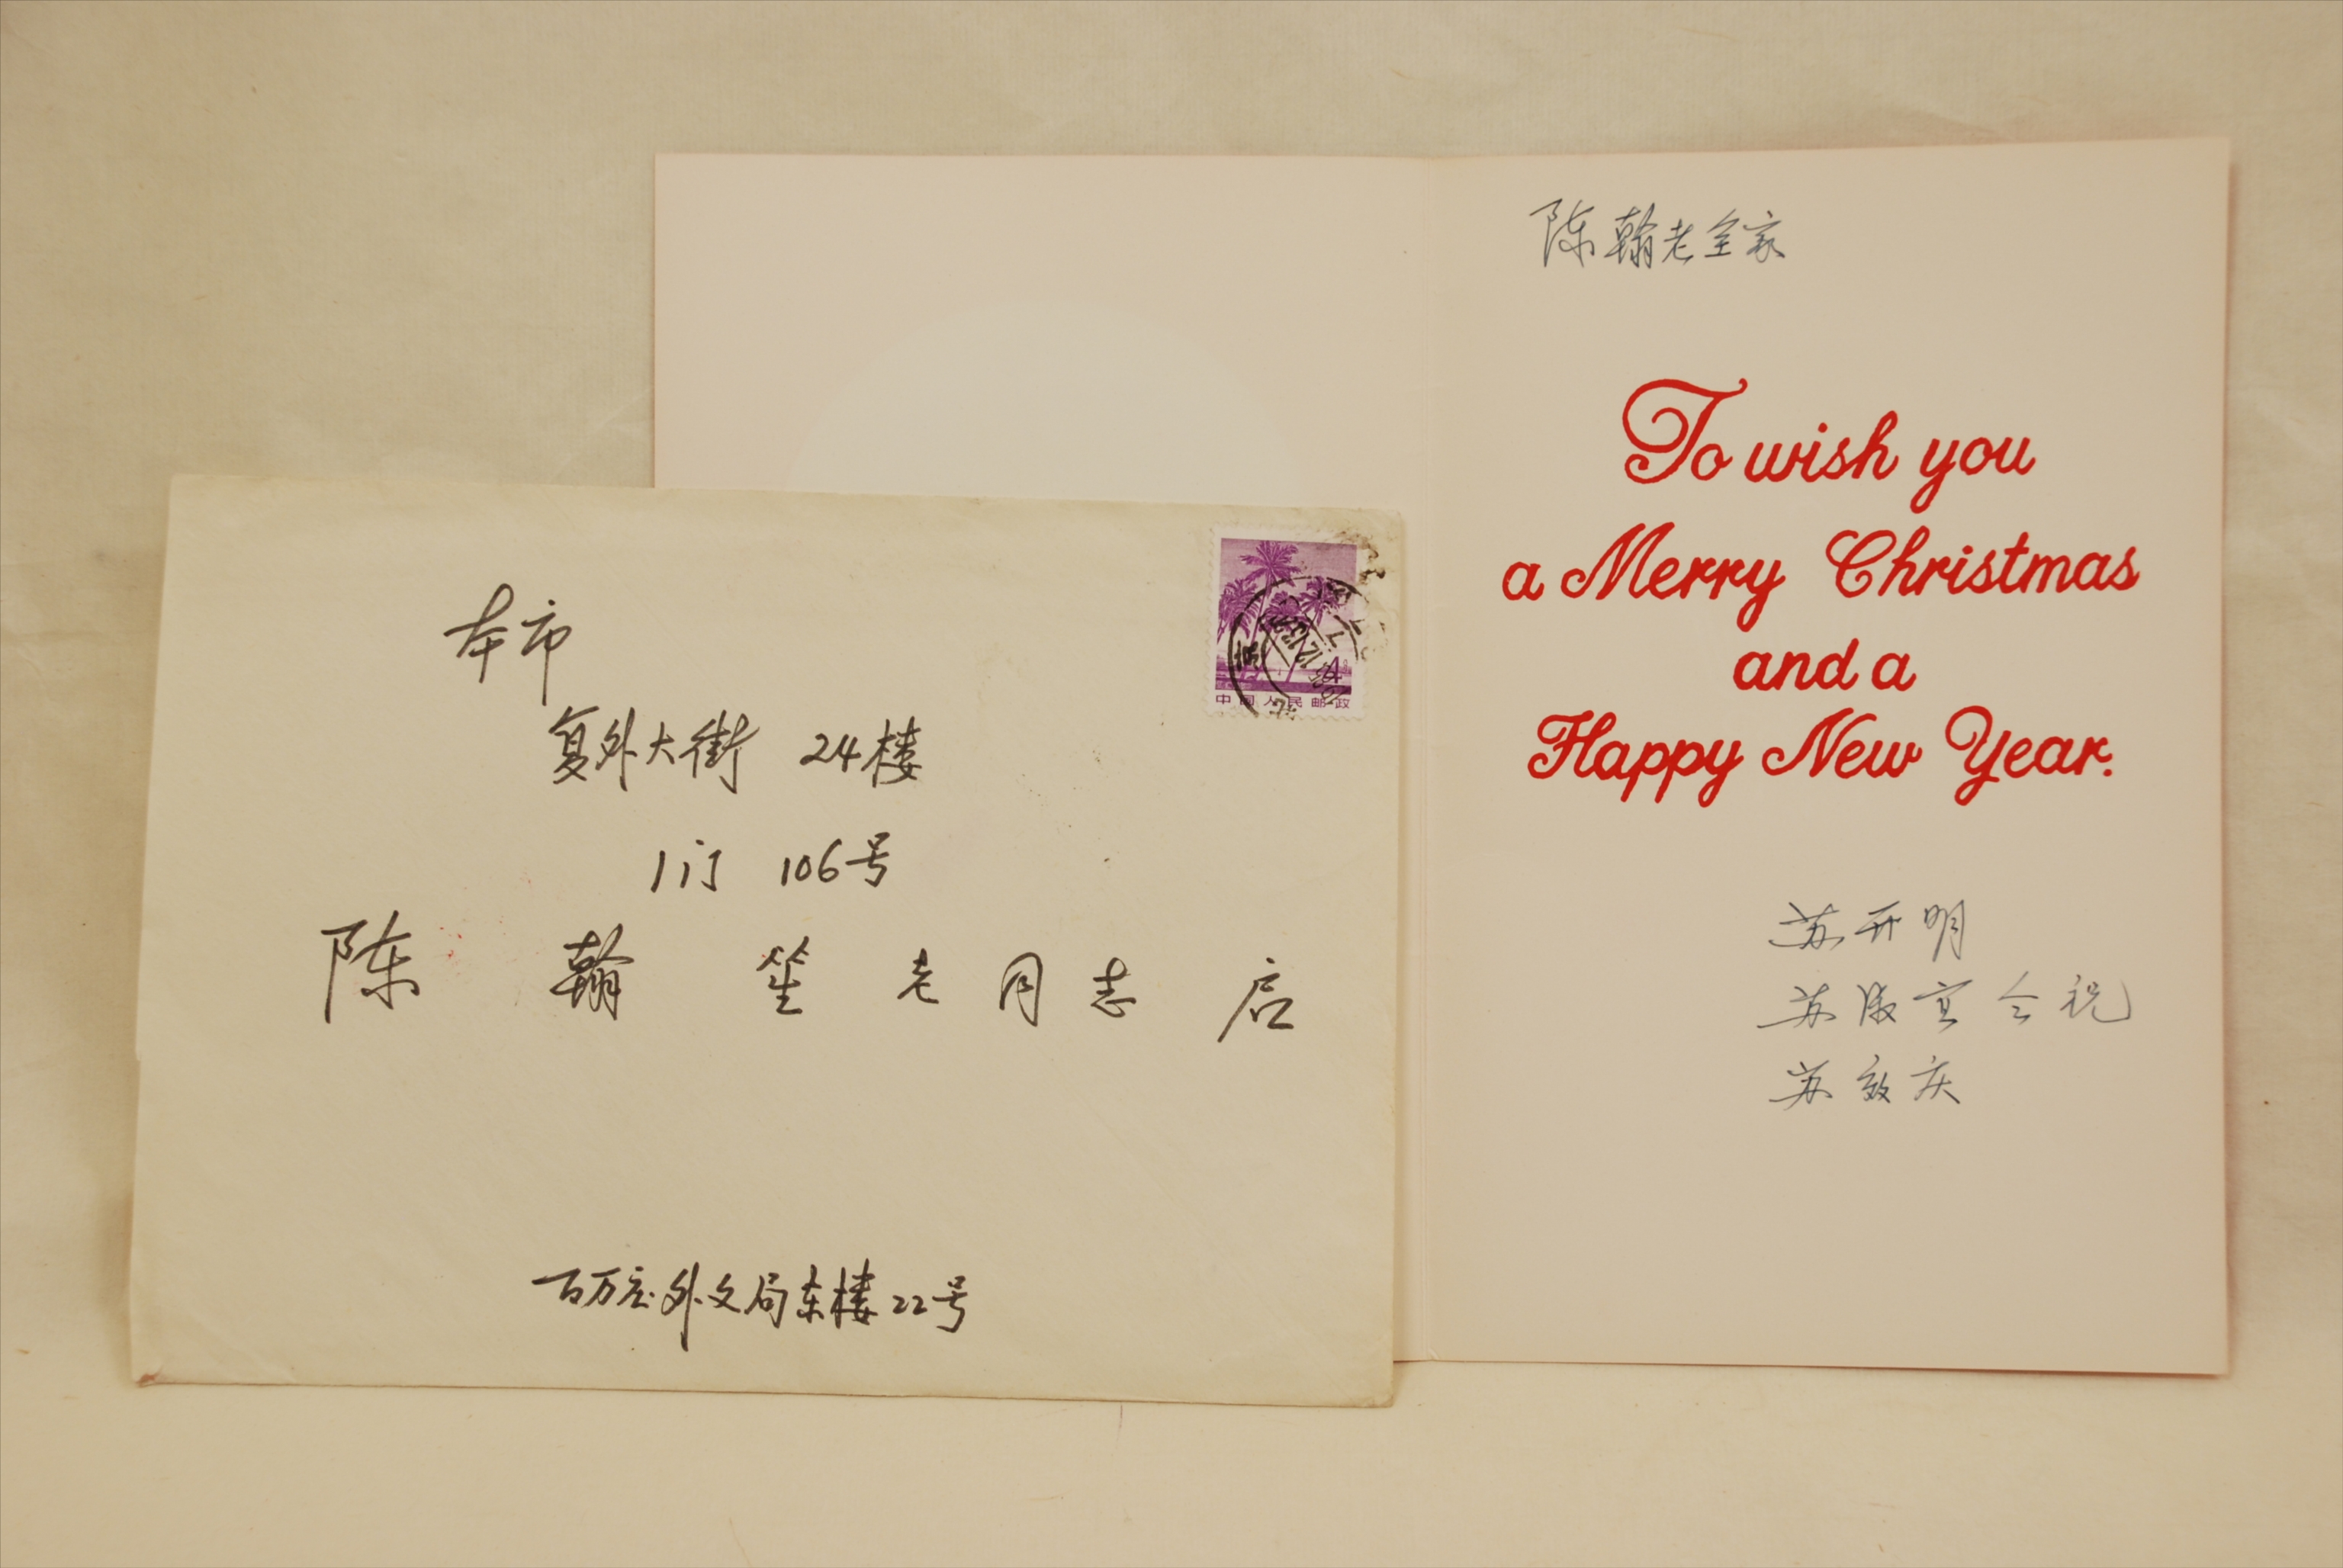 本市
复外大街 24楼
1门 106号
陈 翰 笙 老同志 启
百万庄外文局东楼22号
中国人民邮政
陈翰老全家
To wish you
a Merry Christmas
and a
Happy New Year.
苏开明
苏 仝祝
苏效庆